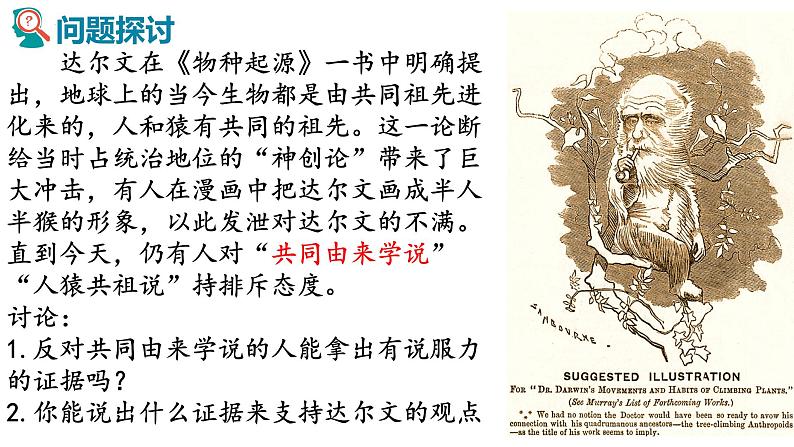 问题探讨
达尔文在《物种起源》一书中明确提
出，地球上的当今生物都是由共同祖先进
化来的，人和猿有共同的祖先。这一论断
给当时占统治地位的“神创论”带来了巨
大冲击，有人在漫画中把达尔文画成半人
半猴的形象，以此发泄对达尔文的不满。
直到今天，仍有人对“共同由来学说”
“人猿共祖说”持排斥态度。
讨论：
1.反对共同由来学说的人能拿出有说服力
的证据吗？
2.你能说出什么证据来支持达尔文的观点
SAMBOURNE
SUGGESTED ILLUSTRATION
FOR "DR. DARWIN'S MOVEMENTS AND HABITS OF CLIMBING PLANTS."
(See Murray's List of Forthcoming Works.)
*⁎* We had no notion the Doctor would have been so ready to avow his
connection with his quadrumanous ancestors—the tree-climbing Anthropoids
—as the title of his work seems to imply.